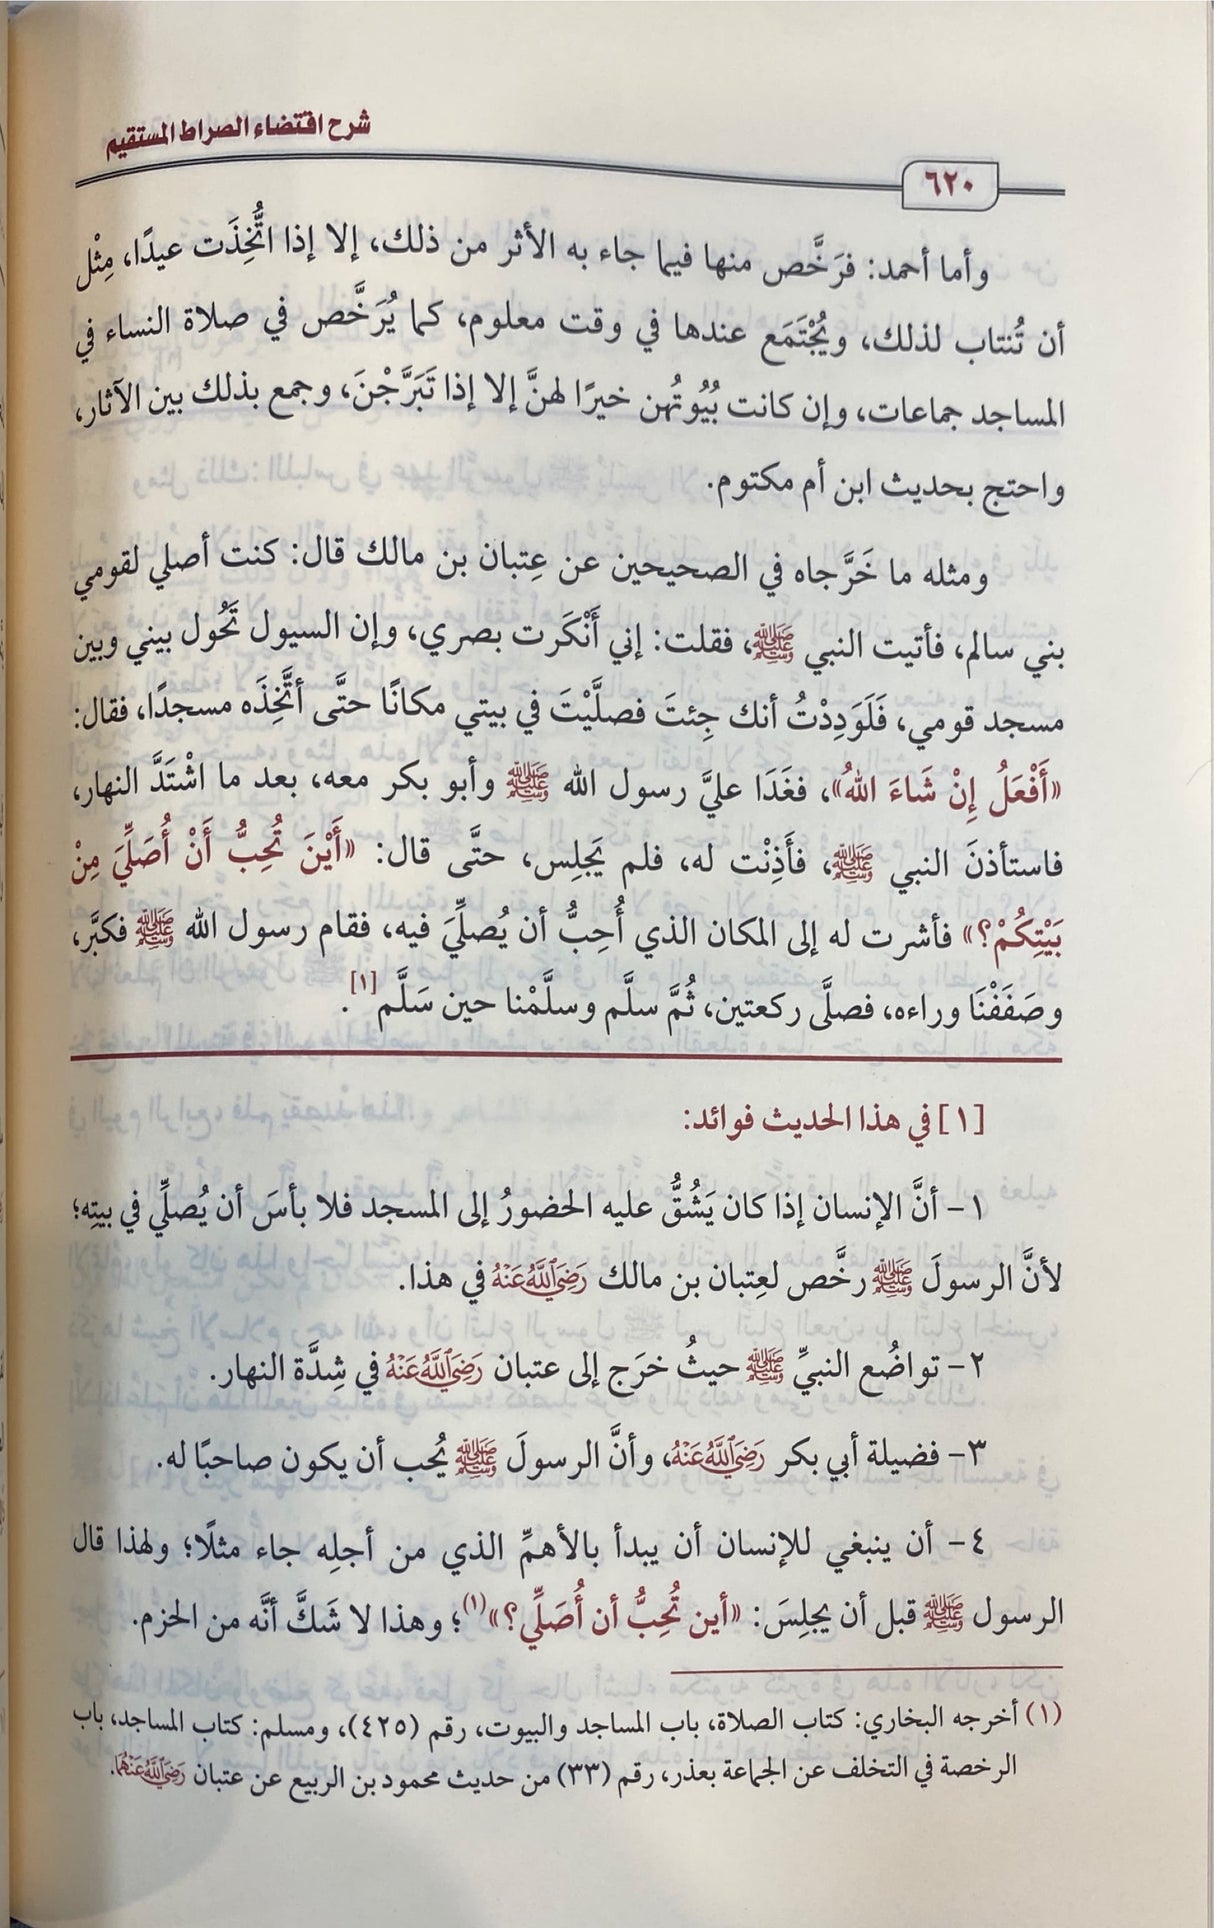 شرح اقتضاء الصراط المستقيم
٦٢٠
وأما أحمد: فرَخَّص منها فيما جاء به الأثر من ذلك، إلا إذا اتُّخِذَت عيدًا، مِثْل
أن تُنتاب لذلك، ويُجْتَمَع عندها في وقت معلوم، كما يُرَخَّص في صلاة النساء في
المساجد جماعات، وإن كانت بُيُوتُهن خيرًا لهنَّ إلا إذا تَبَرَّجْنَ، وجمع بذلك بين الآثار،
واحتج بحديث ابن أم مكتوم.
ومثله ما خَرَّجاه في الصحيحين عن عِتبان بن مالك قال: كنت أصلي لقومي
بني سالم، فأتيت النبي ﷺ، فقلت: إني أَنْكَرت بصري، وإن السيول تَحُول بيني وبين
مسجد قومي، فَلَوَدِدْتُ أنك جِئتَ فصلَّيْتَ في بيتي مكانًا حتَّى أتَّخِذَه مسجدًا، فقال:
«أَفْعَلُ إِنْ شَاءَ اللهُ»، فغَدَا عليَّ رسول الله ﷺ وأبو بكر معه، بعد ما اشْتَدَّ النهار،
فاستأذنَ النبي ﷺ، فأَذِنْت له، فلم يَجلِس، حتَّى قال: «أَيْنَ تُحِبُّ أَنْ أُصَلِّيَ مِنْ
بَيْتِكُمْ؟» فأشرت له إلى المكان الذي أُحِبُّ أن يُصلِّيَ فيه، فقام رسول الله ﷺ فكبَّر،
وصَفَفْنَا وراءه، فصلَّى ركعتين، ثُمَّ سلَّم وسلَّمْنا حين سَلَّم[١].
[١] في هذا الحديث فوائد:
١- أنَّ الإنسان إذا كان يَشُقُّ عليه الحضورُ إلى المسجد فلا بأسَ أن يُصلِّي في بيتِه؛
لأنَّ الرسولَ ﷺ رخَّص لعِتبان بن مالك رَضِيَ اللَّهُ عَنْهُ في هذا.
٢- تواضُع النبيِّ ﷺ حيثُ خرَج إلى عتبان رَضِيَ اللَّهُ عَنْهُ في شِدَّة النهار.
٣- فضيلة أبي بكر رَضِيَ اللَّهُ عَنْهُ، وأنَّ الرسولَ ﷺ يُحب أن يكون صاحبًا له.
٤- أن ينبغي للإنسان أن يبدأ بالأهمِّ الذي من أجلِه جاء مثلًا؛ ولهذا قال
الرسول ﷺ قبل أن يجلِسَ: «أين تُحِبُّ أن أُصَلِّي؟»(١)؛ وهذا لا شَكَّ أنَّه من الحزم.
(١) أخرجه البخاري: كتاب الصلاة، باب المساجد والبيوت، رقم (٤٢٥)، ومسلم: كتاب المساجد، باب
الرخصة في التخلف عن الجماعة بعذر، رقم (٣٣) من حديث محمود بن الربيع عن عتبان رَضِيَ اللَّهُ عَنْهُمَا.